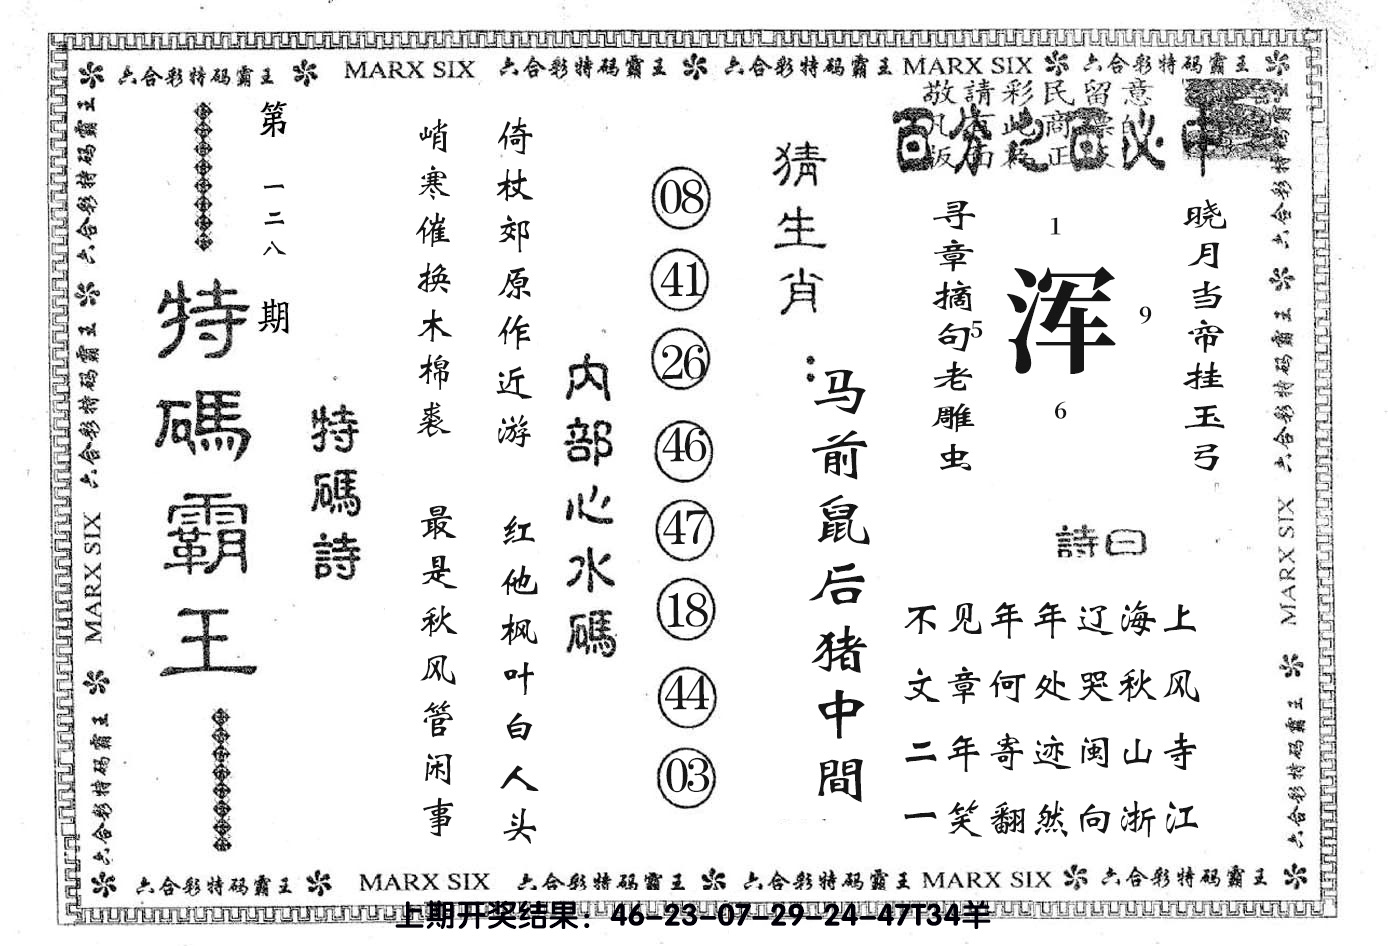 六合彩特码霸王 MARX SIX 六合彩特码霸王 六合彩特码霸王 MARX SIX 六合彩特码霸王
敬請彩民留意
百分之百必中
晓月当帘挂玉弓
寻章摘句老雕虫
1
浑
5
9
6
詩曰
不见年年辽海上
文章何处哭秋风
二年寄迹闽山寺
一笑翻然向浙江
猜生肖：
马前鼠后猪中間
08
41
26
46
47
18
44
03
内部心水碼
倚杖郊原作近游 红他枫叶白人头
峭寒催换木棉裘 最是秋风管闲事
特碼詩
第一二八期
特碼霸王
六合彩特码霸王 六合彩特码霸王 MARX SIX 六合彩特码霸王
六合彩特码霸王 六合彩特码霸王 MARX SIX 六合彩特码霸王
六合彩特码霸王 MARX SIX 六合彩特码霸王 六合彩特码霸王 MARX SIX 六合彩特码霸王
上期开奖结果：46-23-07-29-24-47T34羊